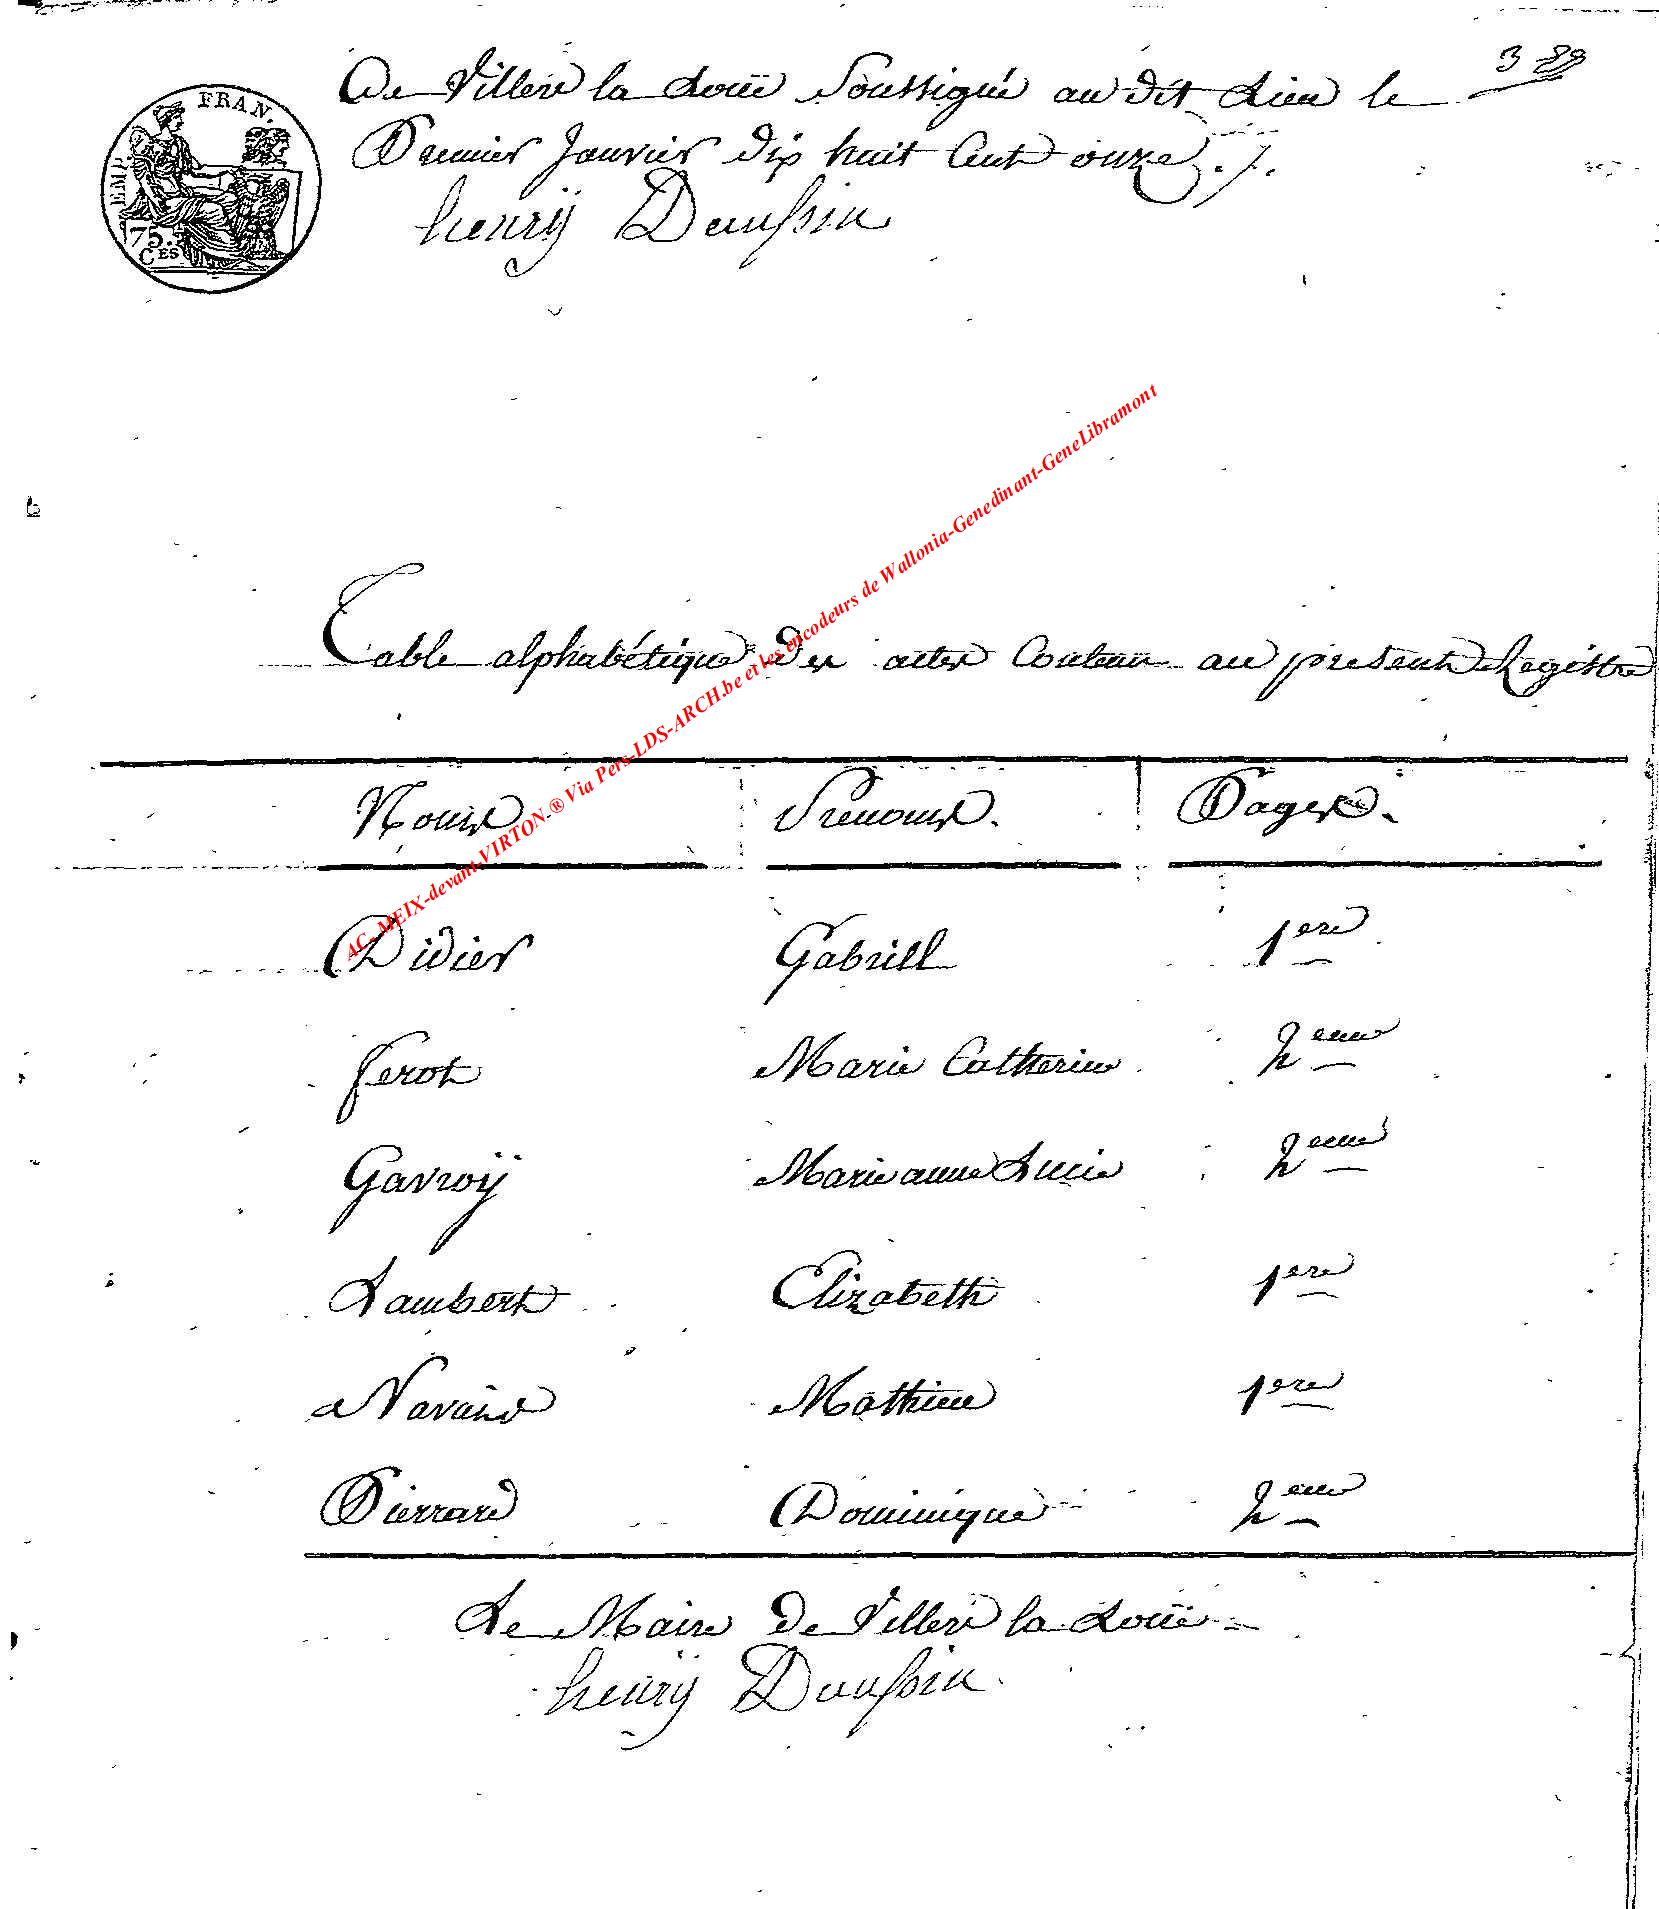 389
De Villers la Loüe Soussigné au dit Lieu le
Premier Janvier dix huit Cent onze ./.
henrÿ Daussin
EMP. FRAN.
75.
CES
Table alphabétique des actes Contenu au présent Registre
Noms Prenoms. Pages.
Didier Gabriell 1ere
ferot Marie Catherine 2eme
Gavroÿ Marie anne Lucie 2eme
Lambert Elizabeth 1ere
Navaux Mathieu 1ere
Pierrard Dominique 2eme
Le Maire de Villers la Loüe
henrÿ Daussin
AC-MEIX-devant-VIRTON-® Via Pers-LDS-ARCH.be et les encodeurs de Wallonia-Genedinant-GeneLibramont